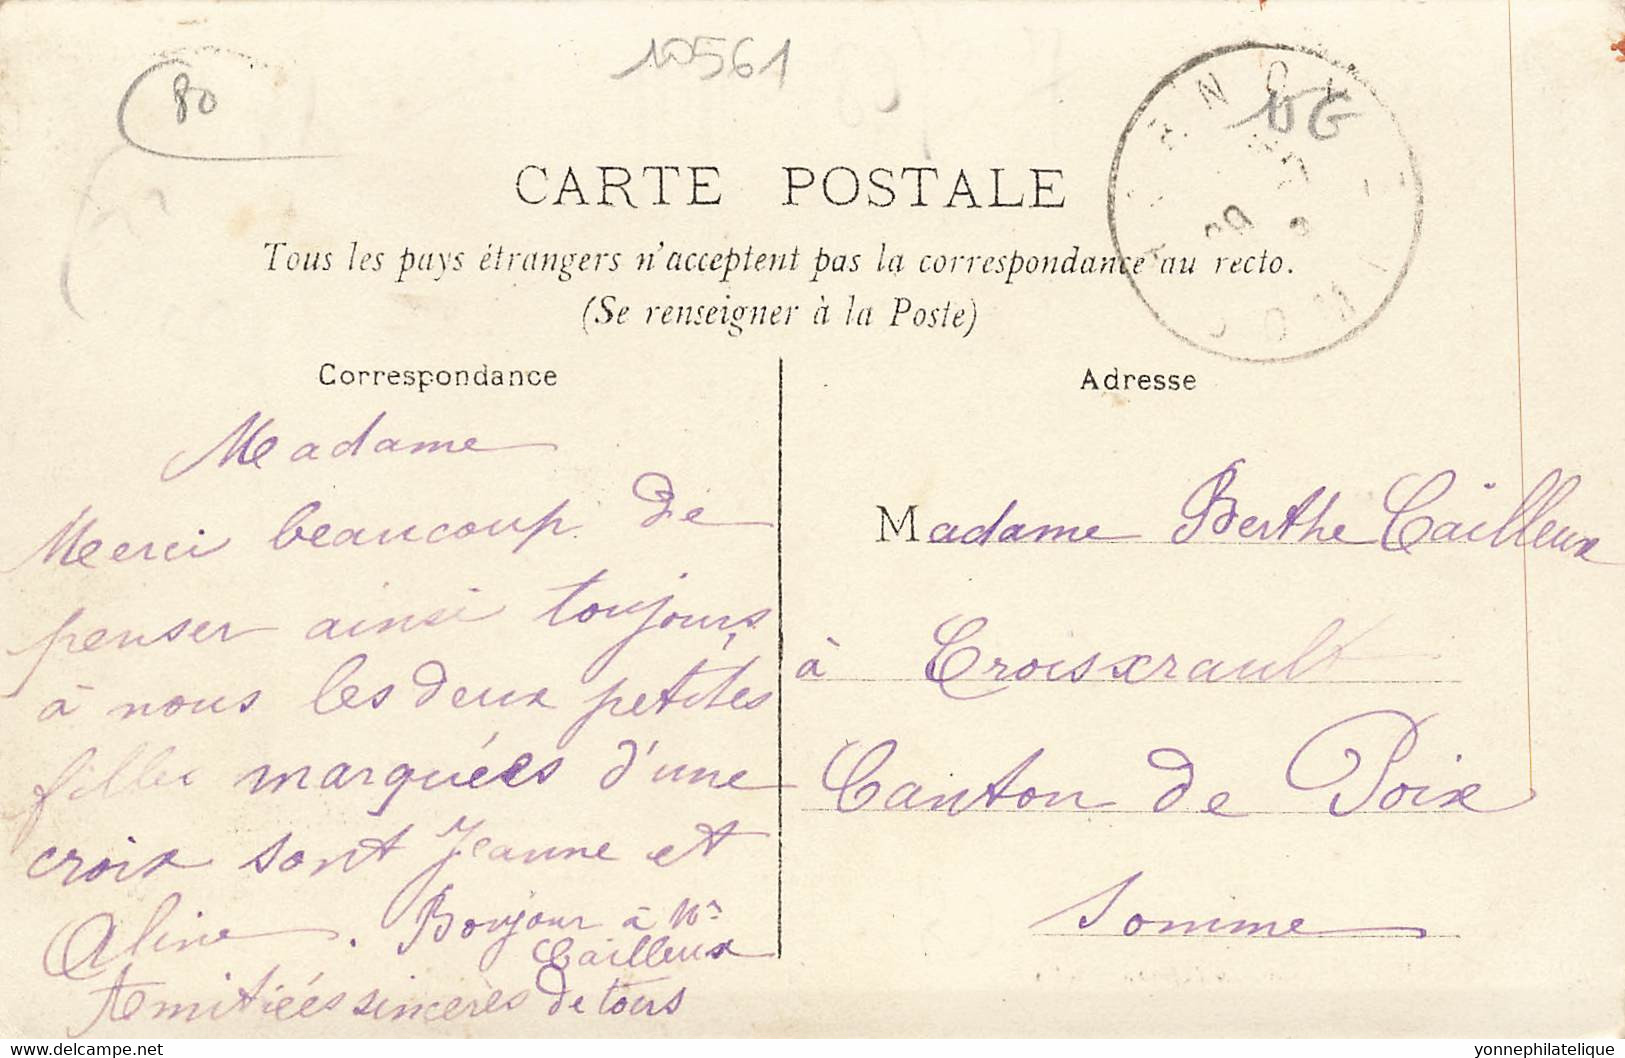 10561
80
VG
CARTE POSTALE
Tous les pays étrangers n'acceptent pas la correspondance au recto.
(Se renseigner à la Poste)
Correspondance
Madame
Merci beaucoup de
penser ainsi toujours
à nous les deux petites
filles marquées d'une
croix sont Jeanne et
Aline. Bonjour à Mr
Cailleux
Amitiées sincères de tous
Adresse
Madame Berthe Cailleux
à Croisxrault
Canton de Poix
Somme
delcampe.net
yonnephilatelique